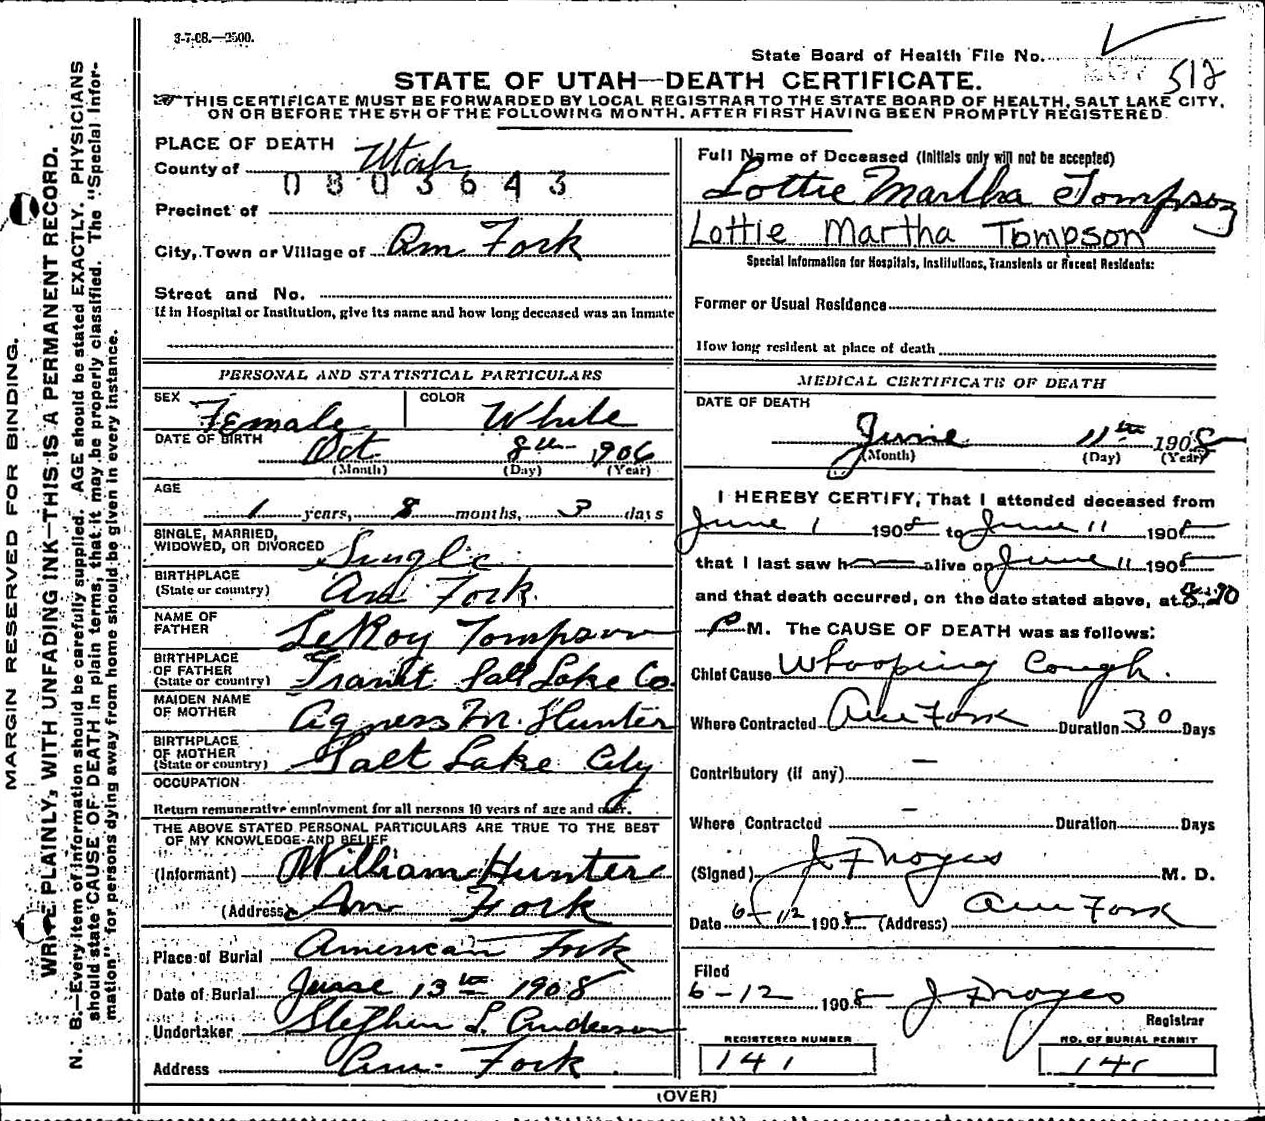 3-7-08.—2500.
State Board of Health File No.
512
STATE OF UTAH—DEATH CERTIFICATE.
THIS CERTIFICATE MUST BE FORWARDED BY LOCAL REGISTRAR TO THE STATE BOARD OF HEALTH, SALT LAKE CITY,
ON OR BEFORE THE 5TH OF THE FOLLOWING MONTH, AFTER FIRST HAVING BEEN PROMPTLY REGISTERED.
PLACE OF DEATH
County of Utah
0803643
Precinct of
City, Town or Village of Am Fork
Street and No.
If in Hospital or Institution, give its name and how long deceased was an inmate
Full Name of Deceased (Initials only will not be accepted)
Lottie Martha Tompson
Lottie Martha Tompson
Special Information for Hospitals, Institutions, Transients or Recent Residents:
Former or Usual Residence
How long resident at place of death
PERSONAL AND STATISTICAL PARTICULARS
SEX Female COLOR White
DATE OF BIRTH Oct 8th 1906
(Month) (Day) (Year)
AGE
1 years, 8 months, 3 days
SINGLE, MARRIED,
WIDOWED, OR DIVORCED Single
BIRTHPLACE
(State or country) Am Fork.
NAME OF
FATHER LeRoy Tompson
BIRTHPLACE
OF FATHER
(State or country) Granit Salt Lake Co.
MAIDEN NAME
OF MOTHER Agness M. Hunter
BIRTHPLACE
OF MOTHER
(State or country) Salt Lake City
OCCUPATION
Return remunerative employment for all persons 10 years of age and over.
THE ABOVE STATED PERSONAL PARTICULARS ARE TRUE TO THE BEST
OF MY KNOWLEDGE AND BELIEF
(Informant) William Hunter
(Address) Am Fork
Place of Burial American Fork
Date of Burial June 13th 1908
Undertaker Stephen L. Anderson
Address Am. Fork
MEDICAL CERTIFICATE OF DEATH
DATE OF DEATH
June 11th 1908
(Month) (Day) (Year)
I HEREBY CERTIFY, That I attended deceased from
June 1 1908 to June 11 1908
that I last saw h alive on June 11 1908
and that death occurred, on the date stated above, at
P M. The CAUSE OF DEATH was as follows:
Chief Cause Whooping Cough.
Where Contracted Am Fork Duration 30 Days
Contributory (if any) —
Where Contracted — Duration Days
(Signed) J F Noyes M. D.
Date 6-12 1908 (Address) Am Fork
Filed
6-12 1908 J F Noyes
Registrar
REGISTERED NUMBER
141
NO. OF BURIAL PERMIT
141
(OVER)
MARGIN RESERVED FOR BINDING.
WRITE PLAINLY, WITH UNFADING INK—THIS IS A PERMANENT RECORD.
N. B.—Every item of information should be carefully supplied. AGE should be stated EXACTLY. PHYSICIANS
should state CAUSE OF DEATH in plain terms, that it may be properly classified. The "Special Infor-
mation" for persons dying away from home should be given in every instance.